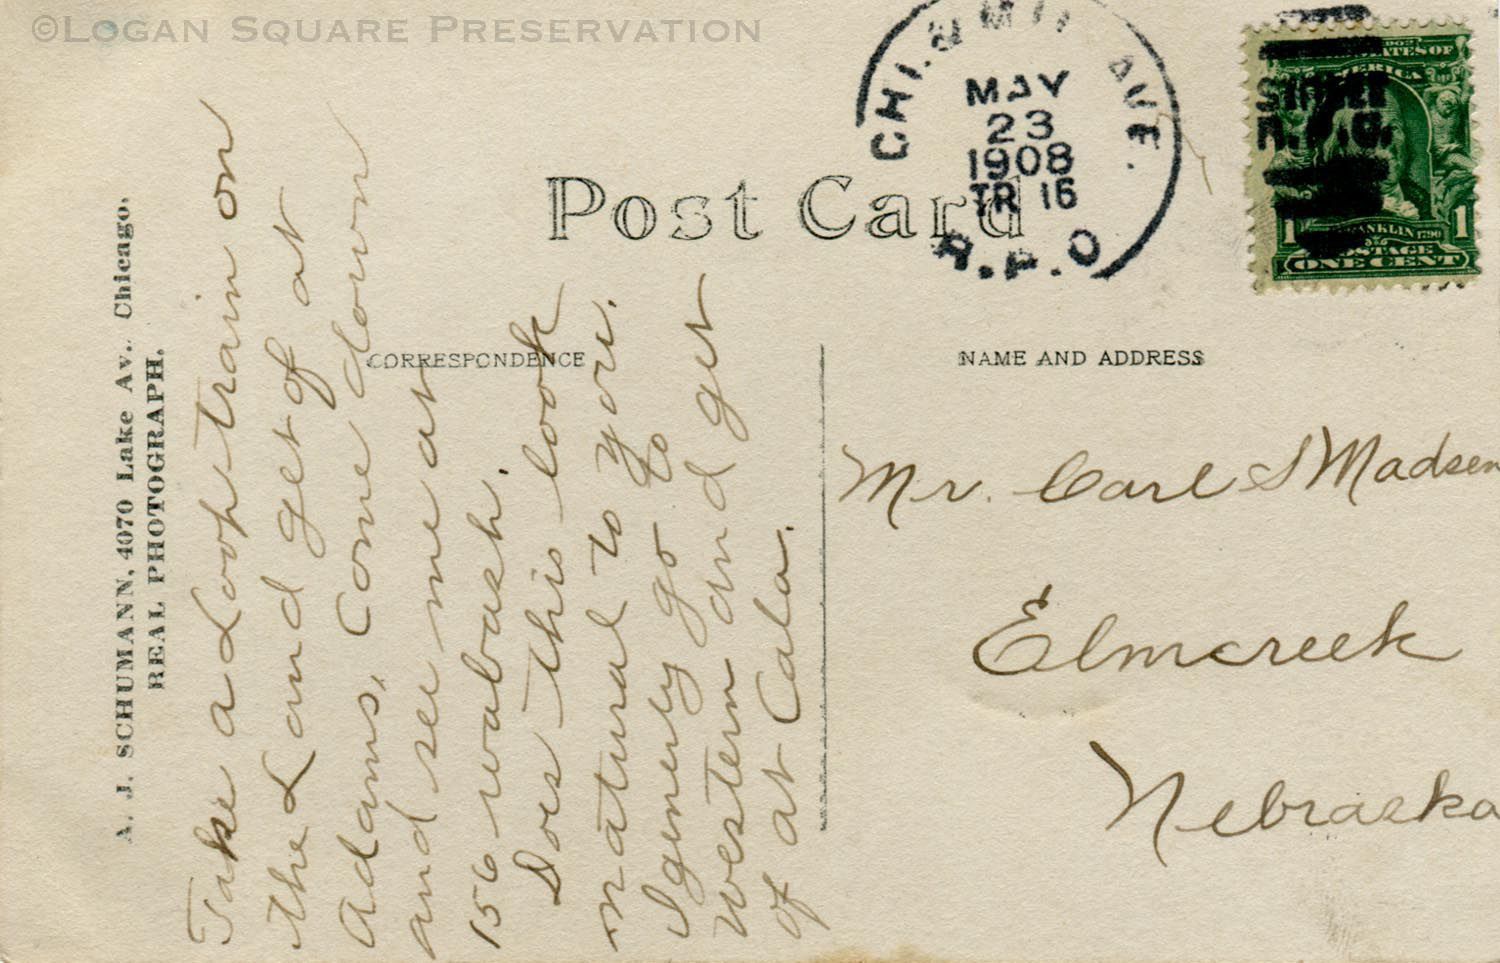 ©Logan Square Preservation
CHI. & MIL AVE.
MAY
23
1908
TR 16
R.P.O
R.P.O.
AMERICA
FRANKLIN 1790
POSTAGE
1 1
ONE CENT
Post Card
CORRESPONDENCE
NAME AND ADDRESS
A. J. SCHUMANN, 4070 Lake Av., Chicago.
REAL PHOTOGRAPH.
Take a Loop train on
the L and get of at
Adams, Come down
and see me at
156 wabash.
Does this look
natural to you.
I generly go to
Western and get
of at Cala.
Mr. Carl S Madsen
Elmcreek
Nebraska